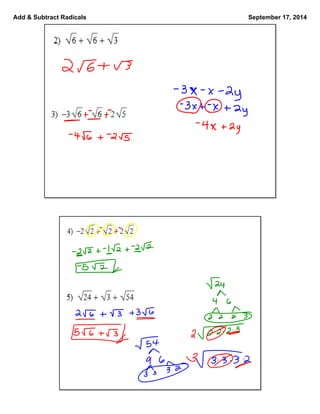 Add & Subtract Radicals September 17, 2014
2) √6 + √6 + √3
2√6 + √3
-3x - x - 2y
-3x + -x + 2y
3) −3√6 + -√6 + -2√5
-4x + 2y
-4√6 + -2√5
4) −2√2 + -√2 + -2√2
-2√2 + -1√2 + -2√2
-5√2
√24
5) √24 + √3 + √54
4 6
2√6 + √3 + 3√6
2 2 2 3
5√6 + √3
2√2·2·2·3
√54
9 6
3 3 3 2
3√3·3·3·2